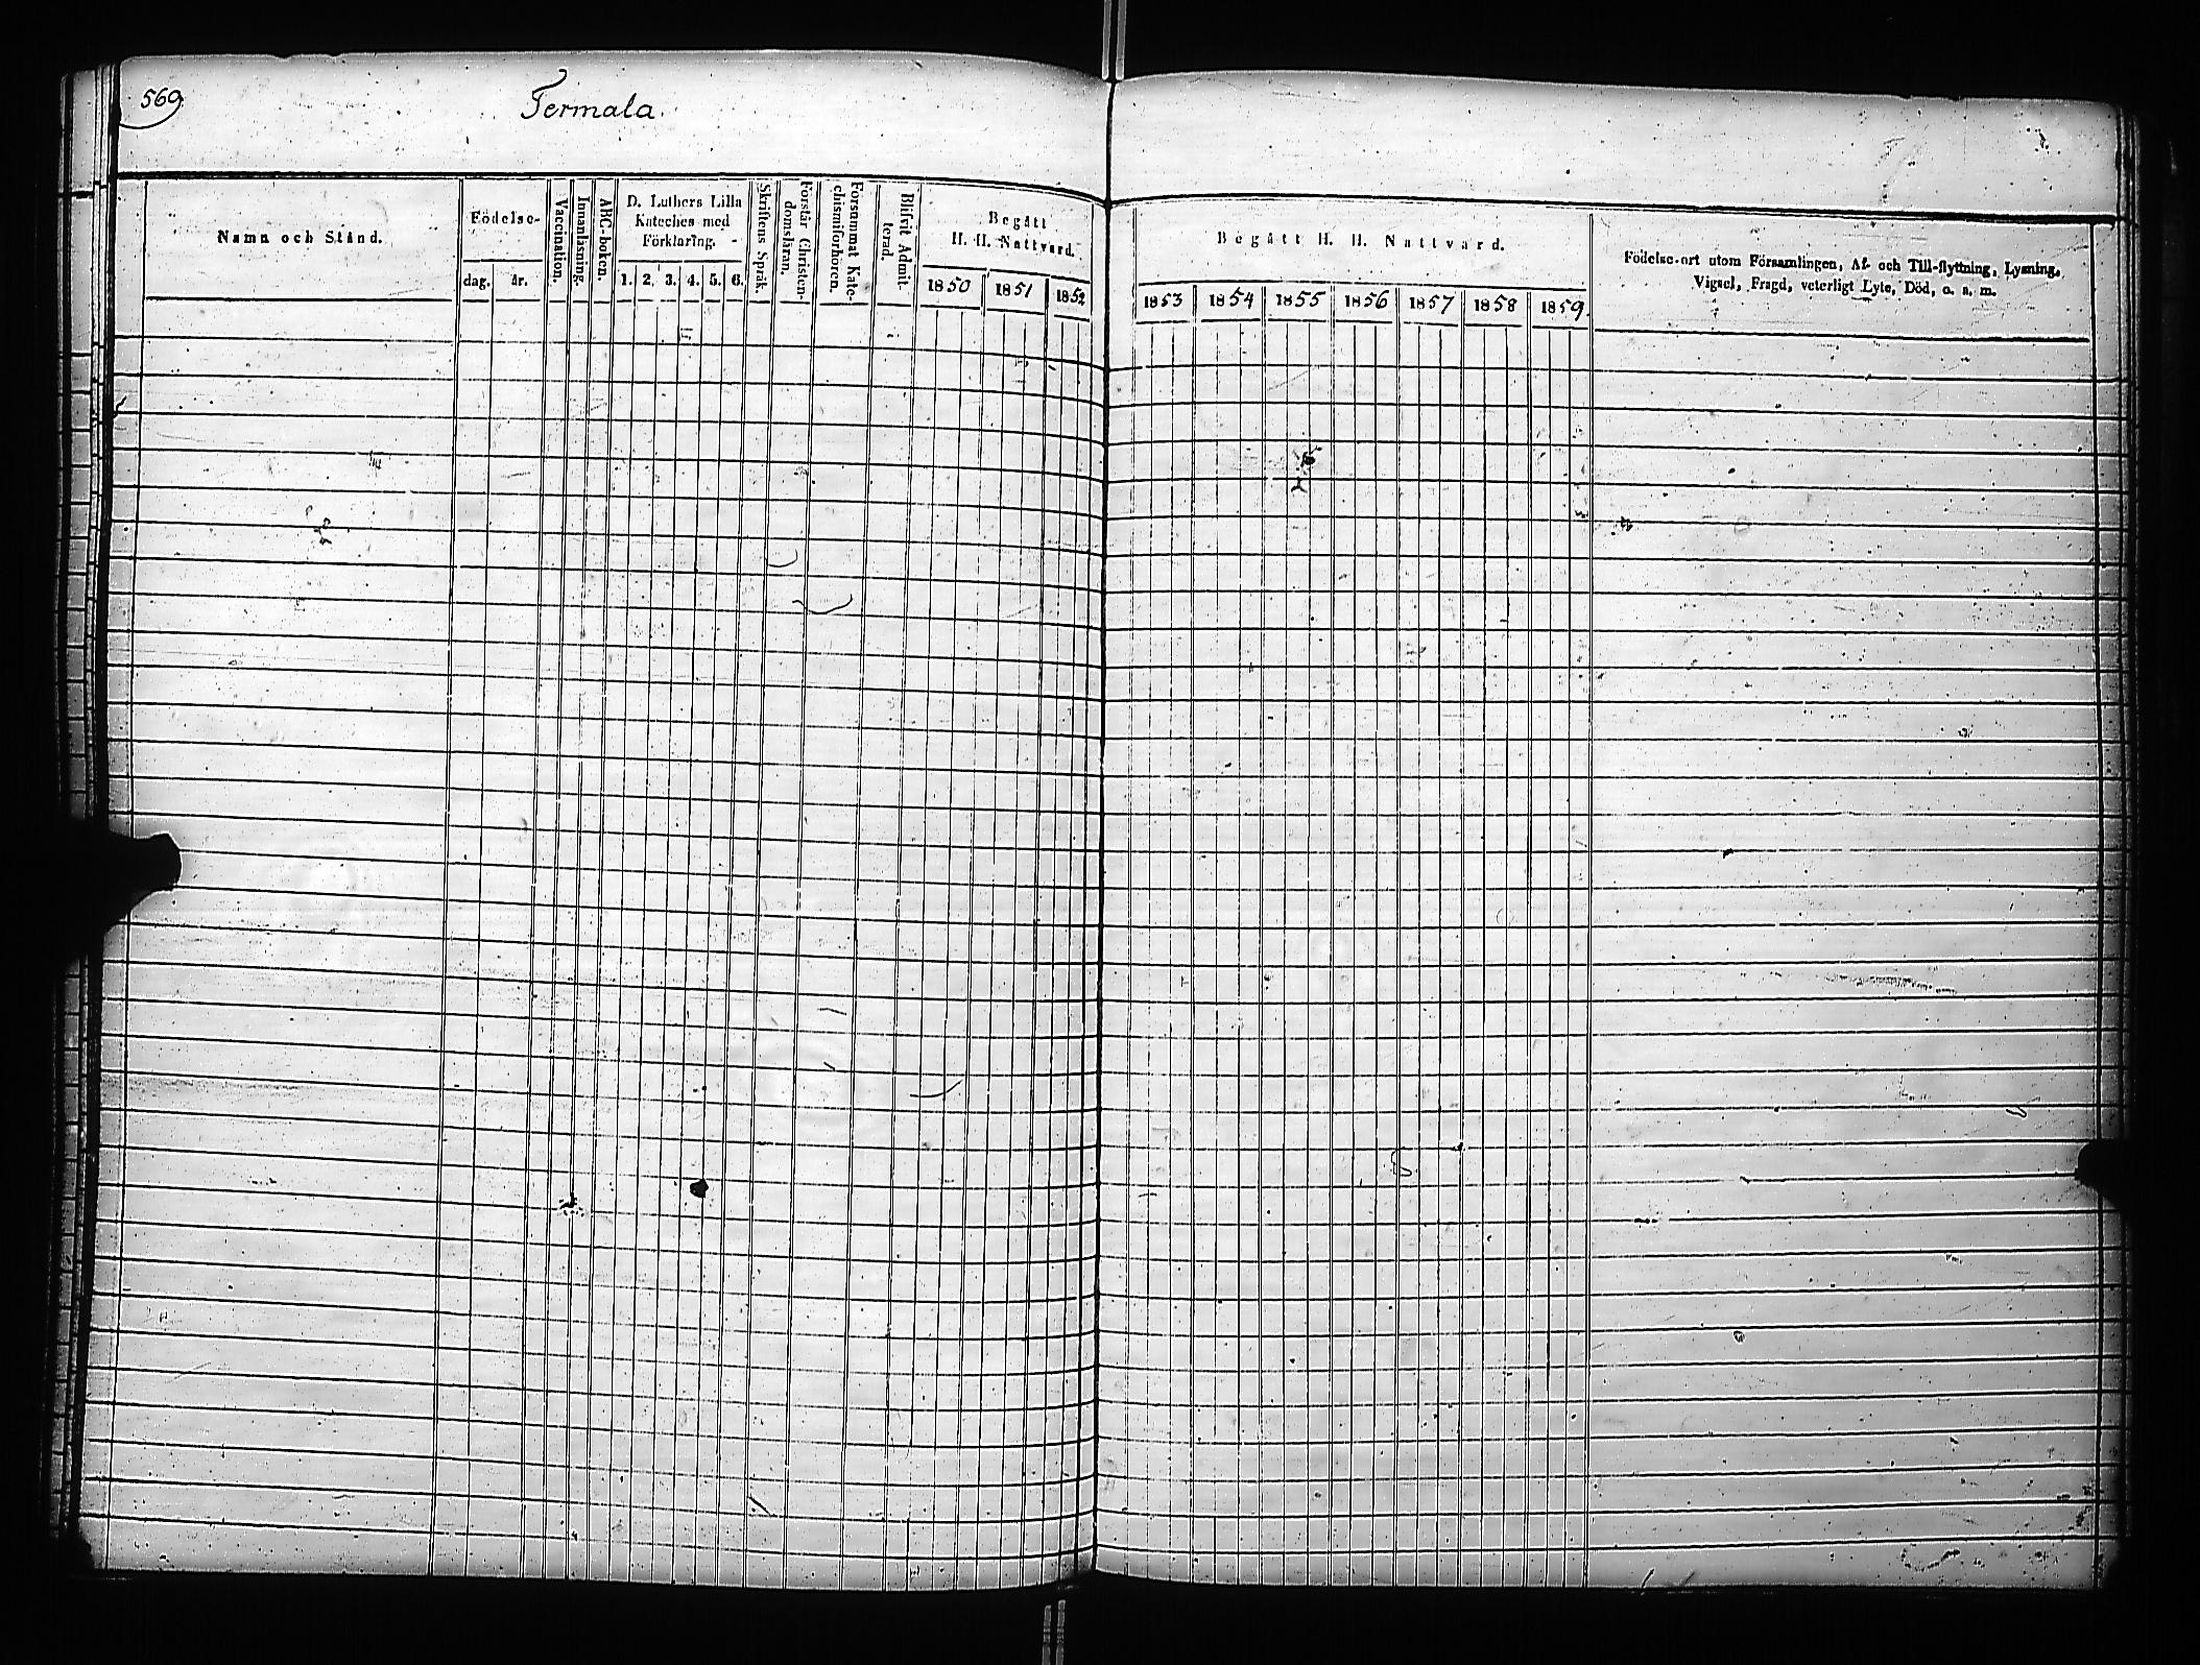 569
Termala.
Namn och Stånd.
Födelse-
dag. år.
Vaccination.
Innanläsning.
ABC-boken.
D. Luthers Lilla
Kateches med
Förklaring.
1. 2. 3. 4. 5. 6.
Skriftens Språk.
Förstår Christen-
domsläran.
Försummat Kate-
chismiförhören.
Blifvit Admit-
terad.
Begått
H. H. Nattvard.
1850 1851 1852
Begått H. H. Nattvard.
1853 1854 1855 1856 1857 1858 1859
Födelse-ort utom Församlingen, Af- och Till-flyttning, Lysning,
Vigsel, Frägd, veterligt Lyte, Död, o. s. m.